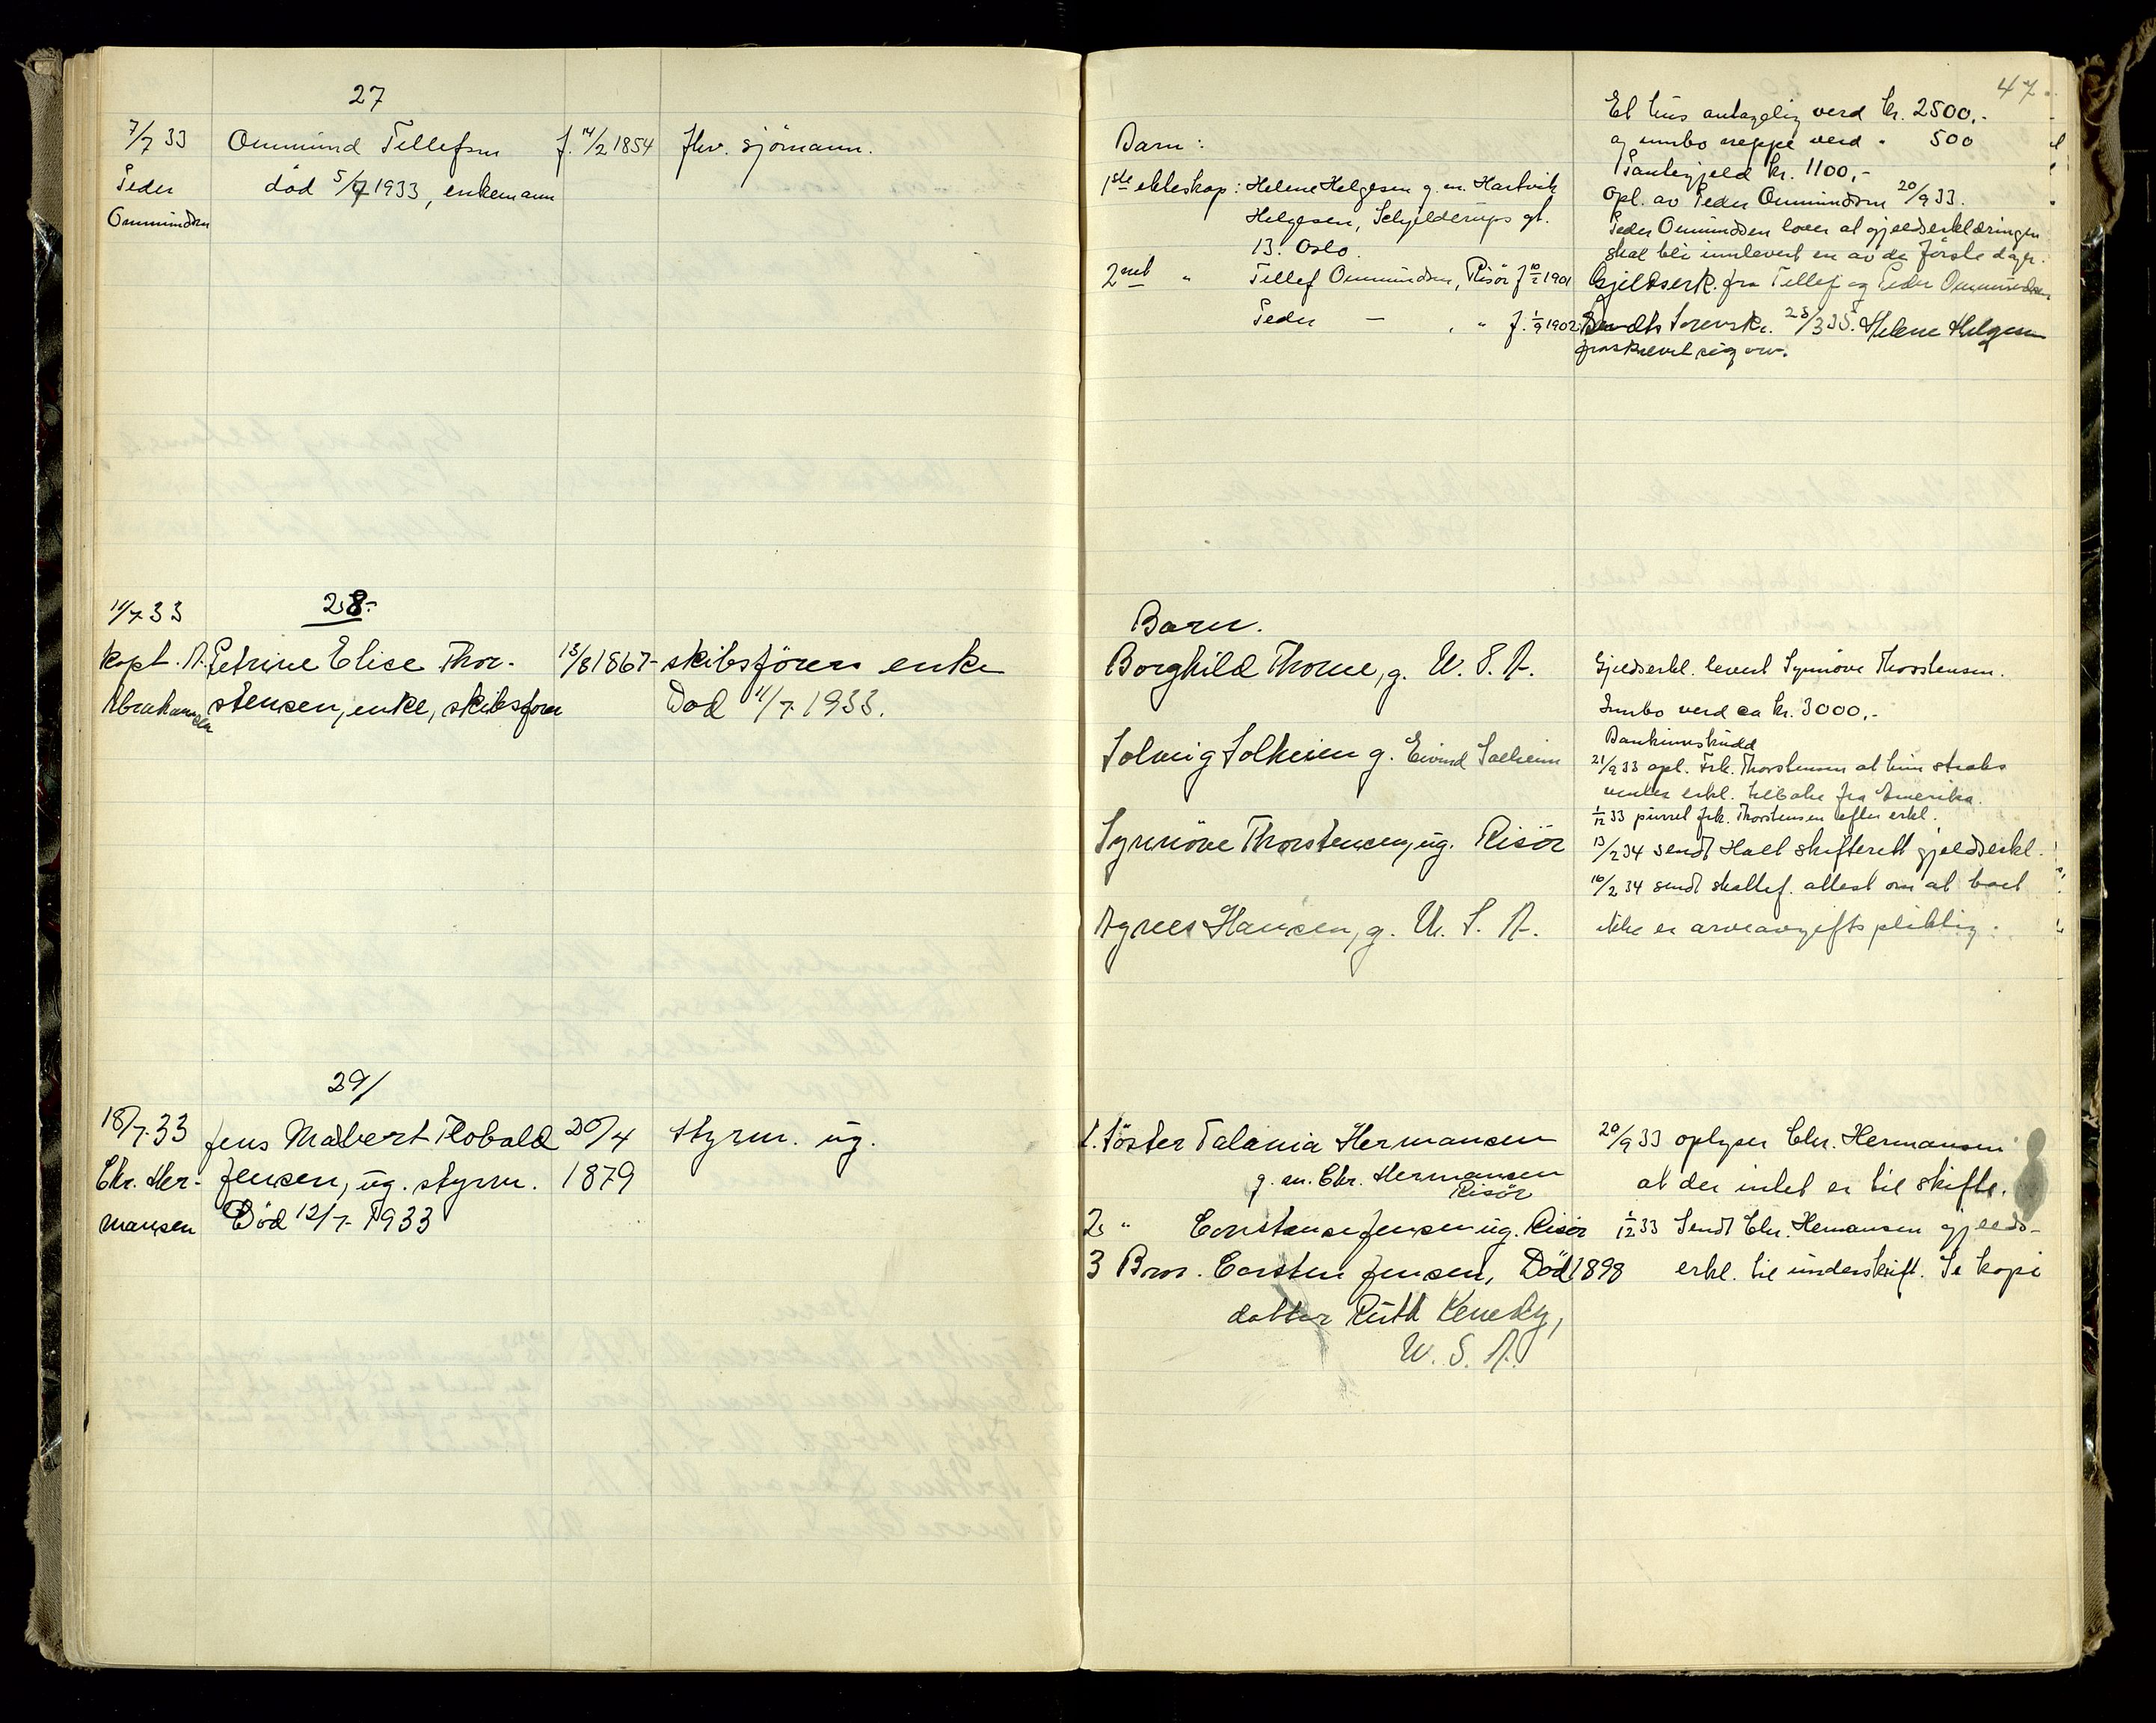 47.
27
7/7 33 Ommund Tellefsen f. 14/2 1854 fhv. sjömann.
Peder død 5/7 1933, enkemann
Ommundsen
Barn:
1ste ekteskap: Helene Helgesen g. m. Hartvik
Helgesen, Schjelderups gt.
13. Oslo.
2net " Tellef Ommundsen, Risör f 10/2 1901
Peder — , " f. 1/9 1902.
Et hus antagelig verd kr. 2500,-
og innbo neppe verd " 500
Pantegjeld kr. 1100,-
Opl. av Peder Ommundsen 20/9 33.
Peder Ommundsen lover at gjeldserklæringen
skal bli innlevert en av de förste dager.
Gjeldserk. fra Tellef og Peder Ommundsen
Sendts Sorenskr. 28/3 35. Helene Helgesen
fraskrevet sig arv.
28-
11/7 33
Kapt. A. Petrine Elise Thor- 13/8 1867- skibsförers enke
Abrahamsen stensen, enke, skibsfører Död 11/7 1933.
Barn.
Borghild Thorne, g. U. S. A.
Solveig Solheim g. Eivind Solheim
Synnöve Thorstensen, ug. Risör
Agnes Hansen, g. U. S. A.
Gjeldserkl. levert Synnöve Thorstensen.
Innbo verd ca kr. 3000,-
Bankinnskudd
21/9 33 opl. Frk. Thorstensen at hun straks
venter erkl. tilbake fra Amerika.
1/12 33 purret frk. Thorstensen efter erkl.
13/2 34 sendt Holt skifterett gjeldserkl.
16/2 34 sendt skattef. attest om at boet
ikke er arveavgiftspliktig.
29/
18/7 33 Jens Mabert Robald 20/4 styrm. ug.
Chr. Her- Jensen, ug. styrm. 1879
mansen Död 12/7 1933
1. Söster Talania Hermansen
g. m. Chr. Hermansen
Risör
2, " Constanse Jensen ug. Risör
3 Bror. Carsten Jensen, Död 1898
datter Ruth Kenedy,
U. S. A.
20/9 33 oplyser Chr. Hermansen
at der intet er til skifte.
1/12 33 Sendt Chr. Hermansen gjelds-
erkl. til underskrift. Se kopi